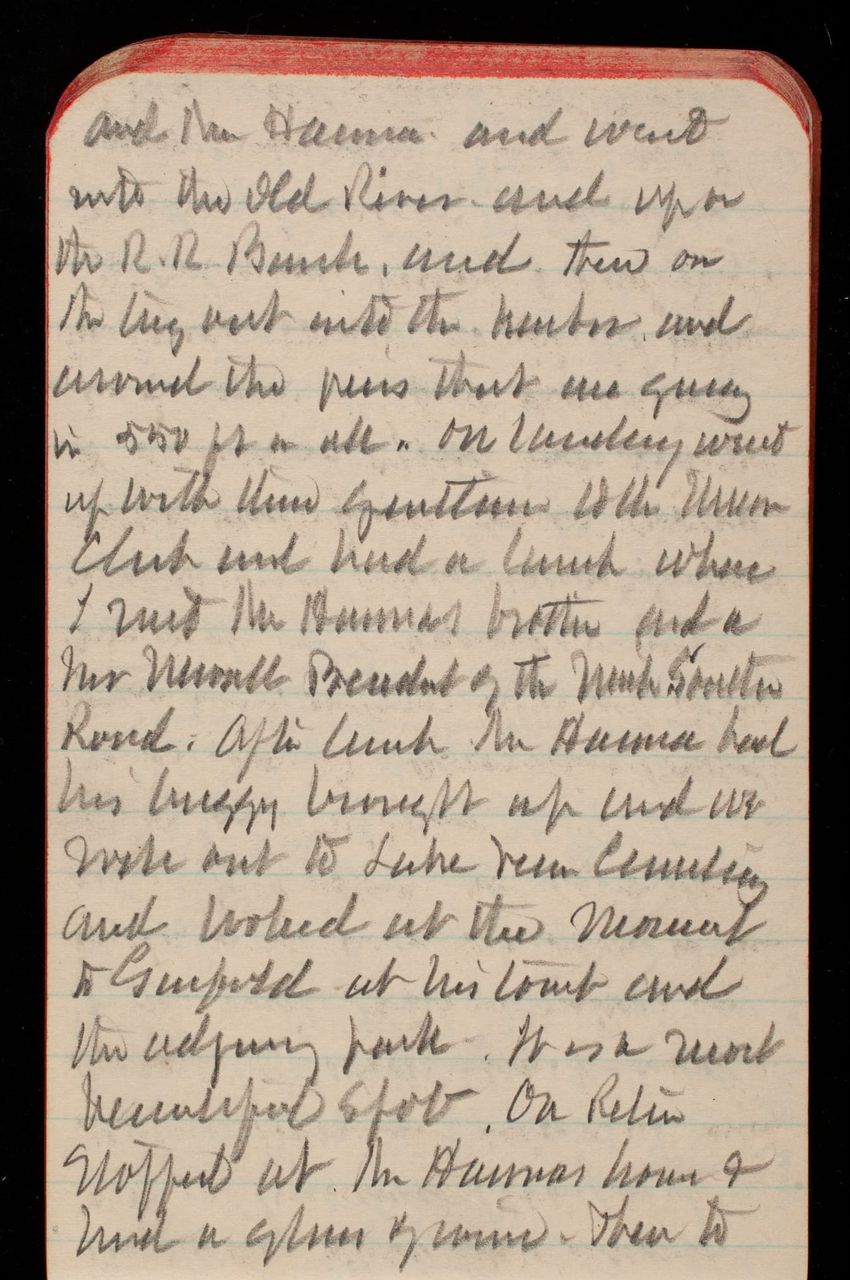 and Mr Hanna. and went
into the Old River and up on
the R.R. Bank, and then on
the tug out into the harbor and
around the piers that are going
in 550 ft in all. On landing went
up with these gentlemen to the Union
Club and had a lunch where
I met Mr Hannas brother and a
Mr Newell President of the Lake Shore
Road. After lunch Mr Hanna had
his buggy brought up and we
rode out to Lake View Cemetery
and looked at the Monument
to Garfield at his tomb and
the adjoining park. It is a most
beautiful spot. On Return
Stopped at Mr Hannas house &
had a glass of wine. Then to